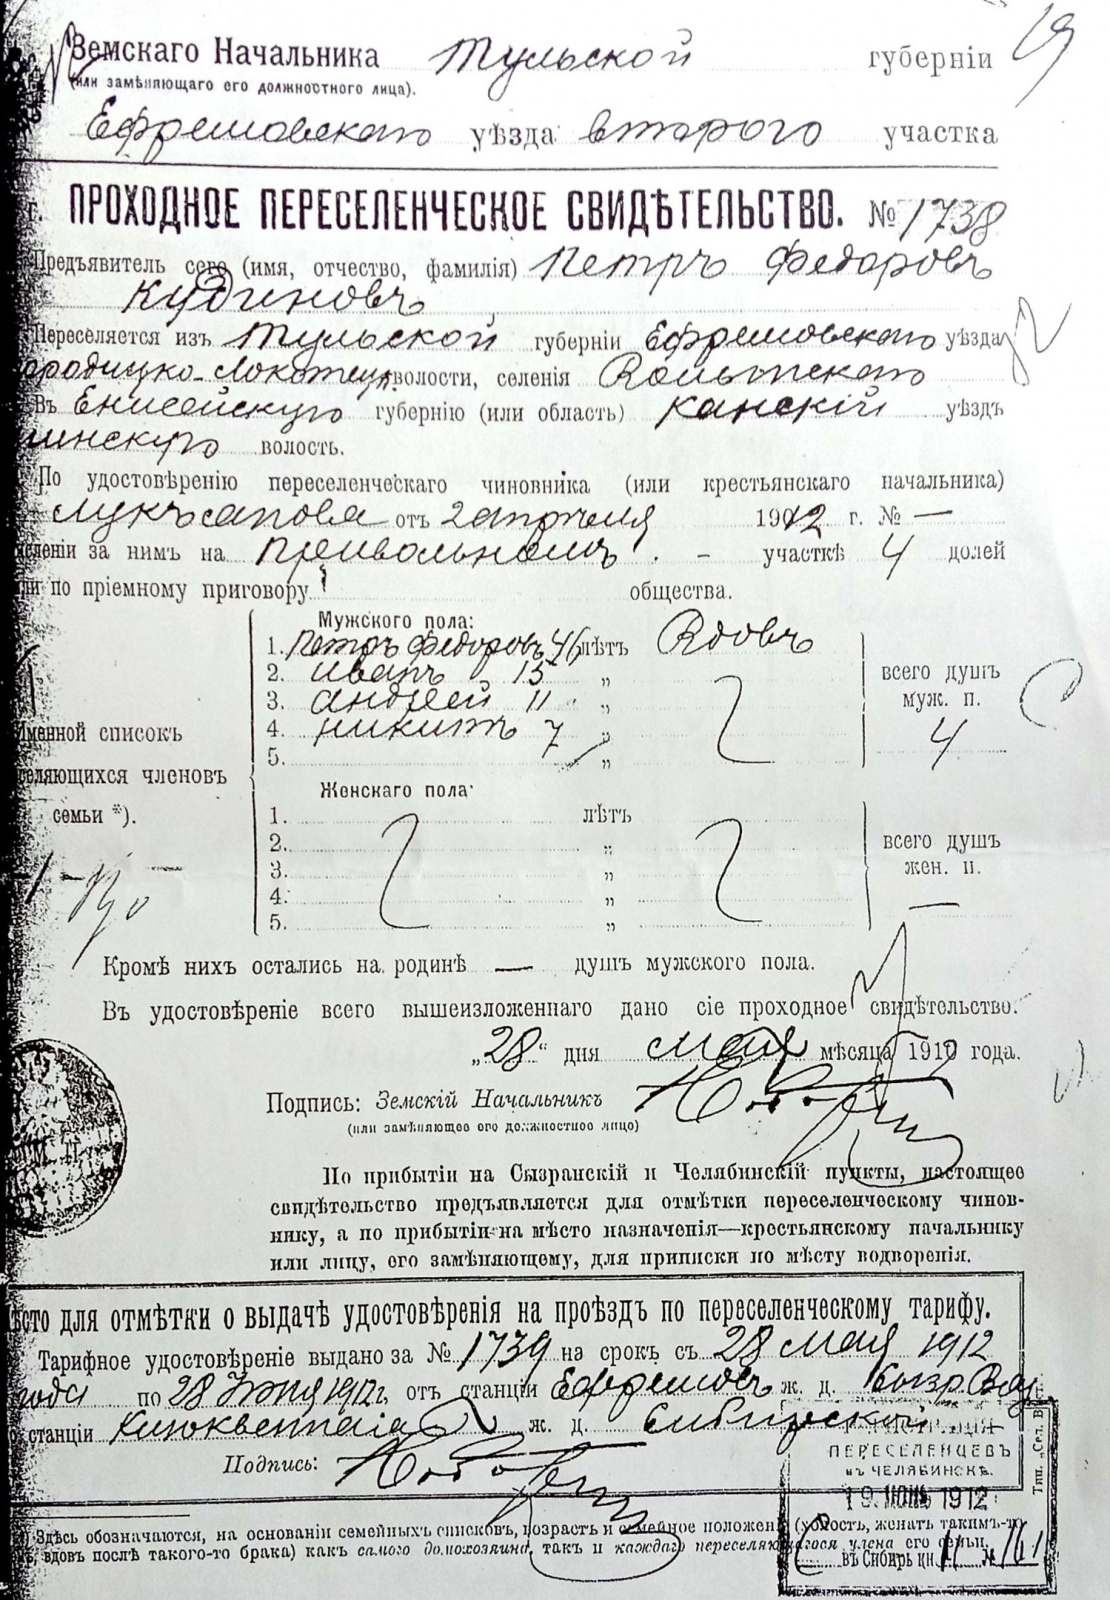 19
Земскаго Начальника Тульской губерніи
(или замѣняющаго его должностного лица).
Ефремовскаго уѣзда второго участка
г. ПРОХОДНОЕ ПЕРЕСЕЛЕНЧЕСКОЕ СВИДѢТЕЛЬСТВО. № 1738
Предъявитель сего (имя, отчество, фамилія) Петръ Федоровъ
Кудиновъ
Переселяется изъ Тульской губерніи Ефремовскаго уѣзда
волости, селенія
Въ Енисейскую губернію (или область) Канскій уѣздъ
волость.
По удостовѣренію переселенческаго чиновника (или крестьянскаго начальника)
отъ 2 апрѣля 1912 г. № —
за нимъ на Привольномъ - участкѣ 4 долей
по пріемному приговору общества.
Мужского пола:
1. Петръ Федоровъ 46 лѣтъ Вдовъ
2. Иванъ 15 „
3. Андрей 11 „
4. Никита 7 „
5. „
всего душъ
муж. п.
4
Именной списокъ
селяющихся членовъ
семьи *).
Женскаго пола:
1. лѣтъ
2. „
3. „
4. „
5. „
всего душъ
жен. п.
—
Кромѣ нихъ остались на родинѣ — душъ мужского пола.
Въ удостовѣреніе всего вышеизложеннаго дано сіе проходное свидѣтельство.
„28“ дня мая мѣсяца 1912 года.
Подпись: Земскій Начальникъ
(или замѣняющее его должностное лицо)
По прибытіи на Сызранскій и Челябинскій пункты, настоящее
свидѣтельство предъявляется для отмѣтки переселенческому чинов-
нику, а по прибытіи на мѣсто назначенія—крестьянскому начальнику
или лицу, его замѣняющему, для приписки по мѣсту водворенія.
Мѣсто для отмѣтки о выдачѣ удостовѣренія на проѣздъ по переселенческому тарифу.
Тарифное удостовѣреніе выдано за № 1739 на срокъ съ 28 мая 1912
года по 28 1912 г. отъ станціи Ефремовъ ж. д.
станціи ж. д. Сибирской
Подпись:
РЕГИСТРАЦІЯ
ПЕРЕСЕЛЕНЦЕВЪ
въ ЧЕЛЯБИНСКѢ.
1912
въ Сибирь №
Здѣсь обозначаются, на основаніи семейныхъ списковъ, возрастъ и семейное положеніе (холостъ, женатъ такимъ-то
вдовъ послѣ такого-то брака) какъ самого домохозяина, такъ и каждаго переселяющагося члена его семьи.